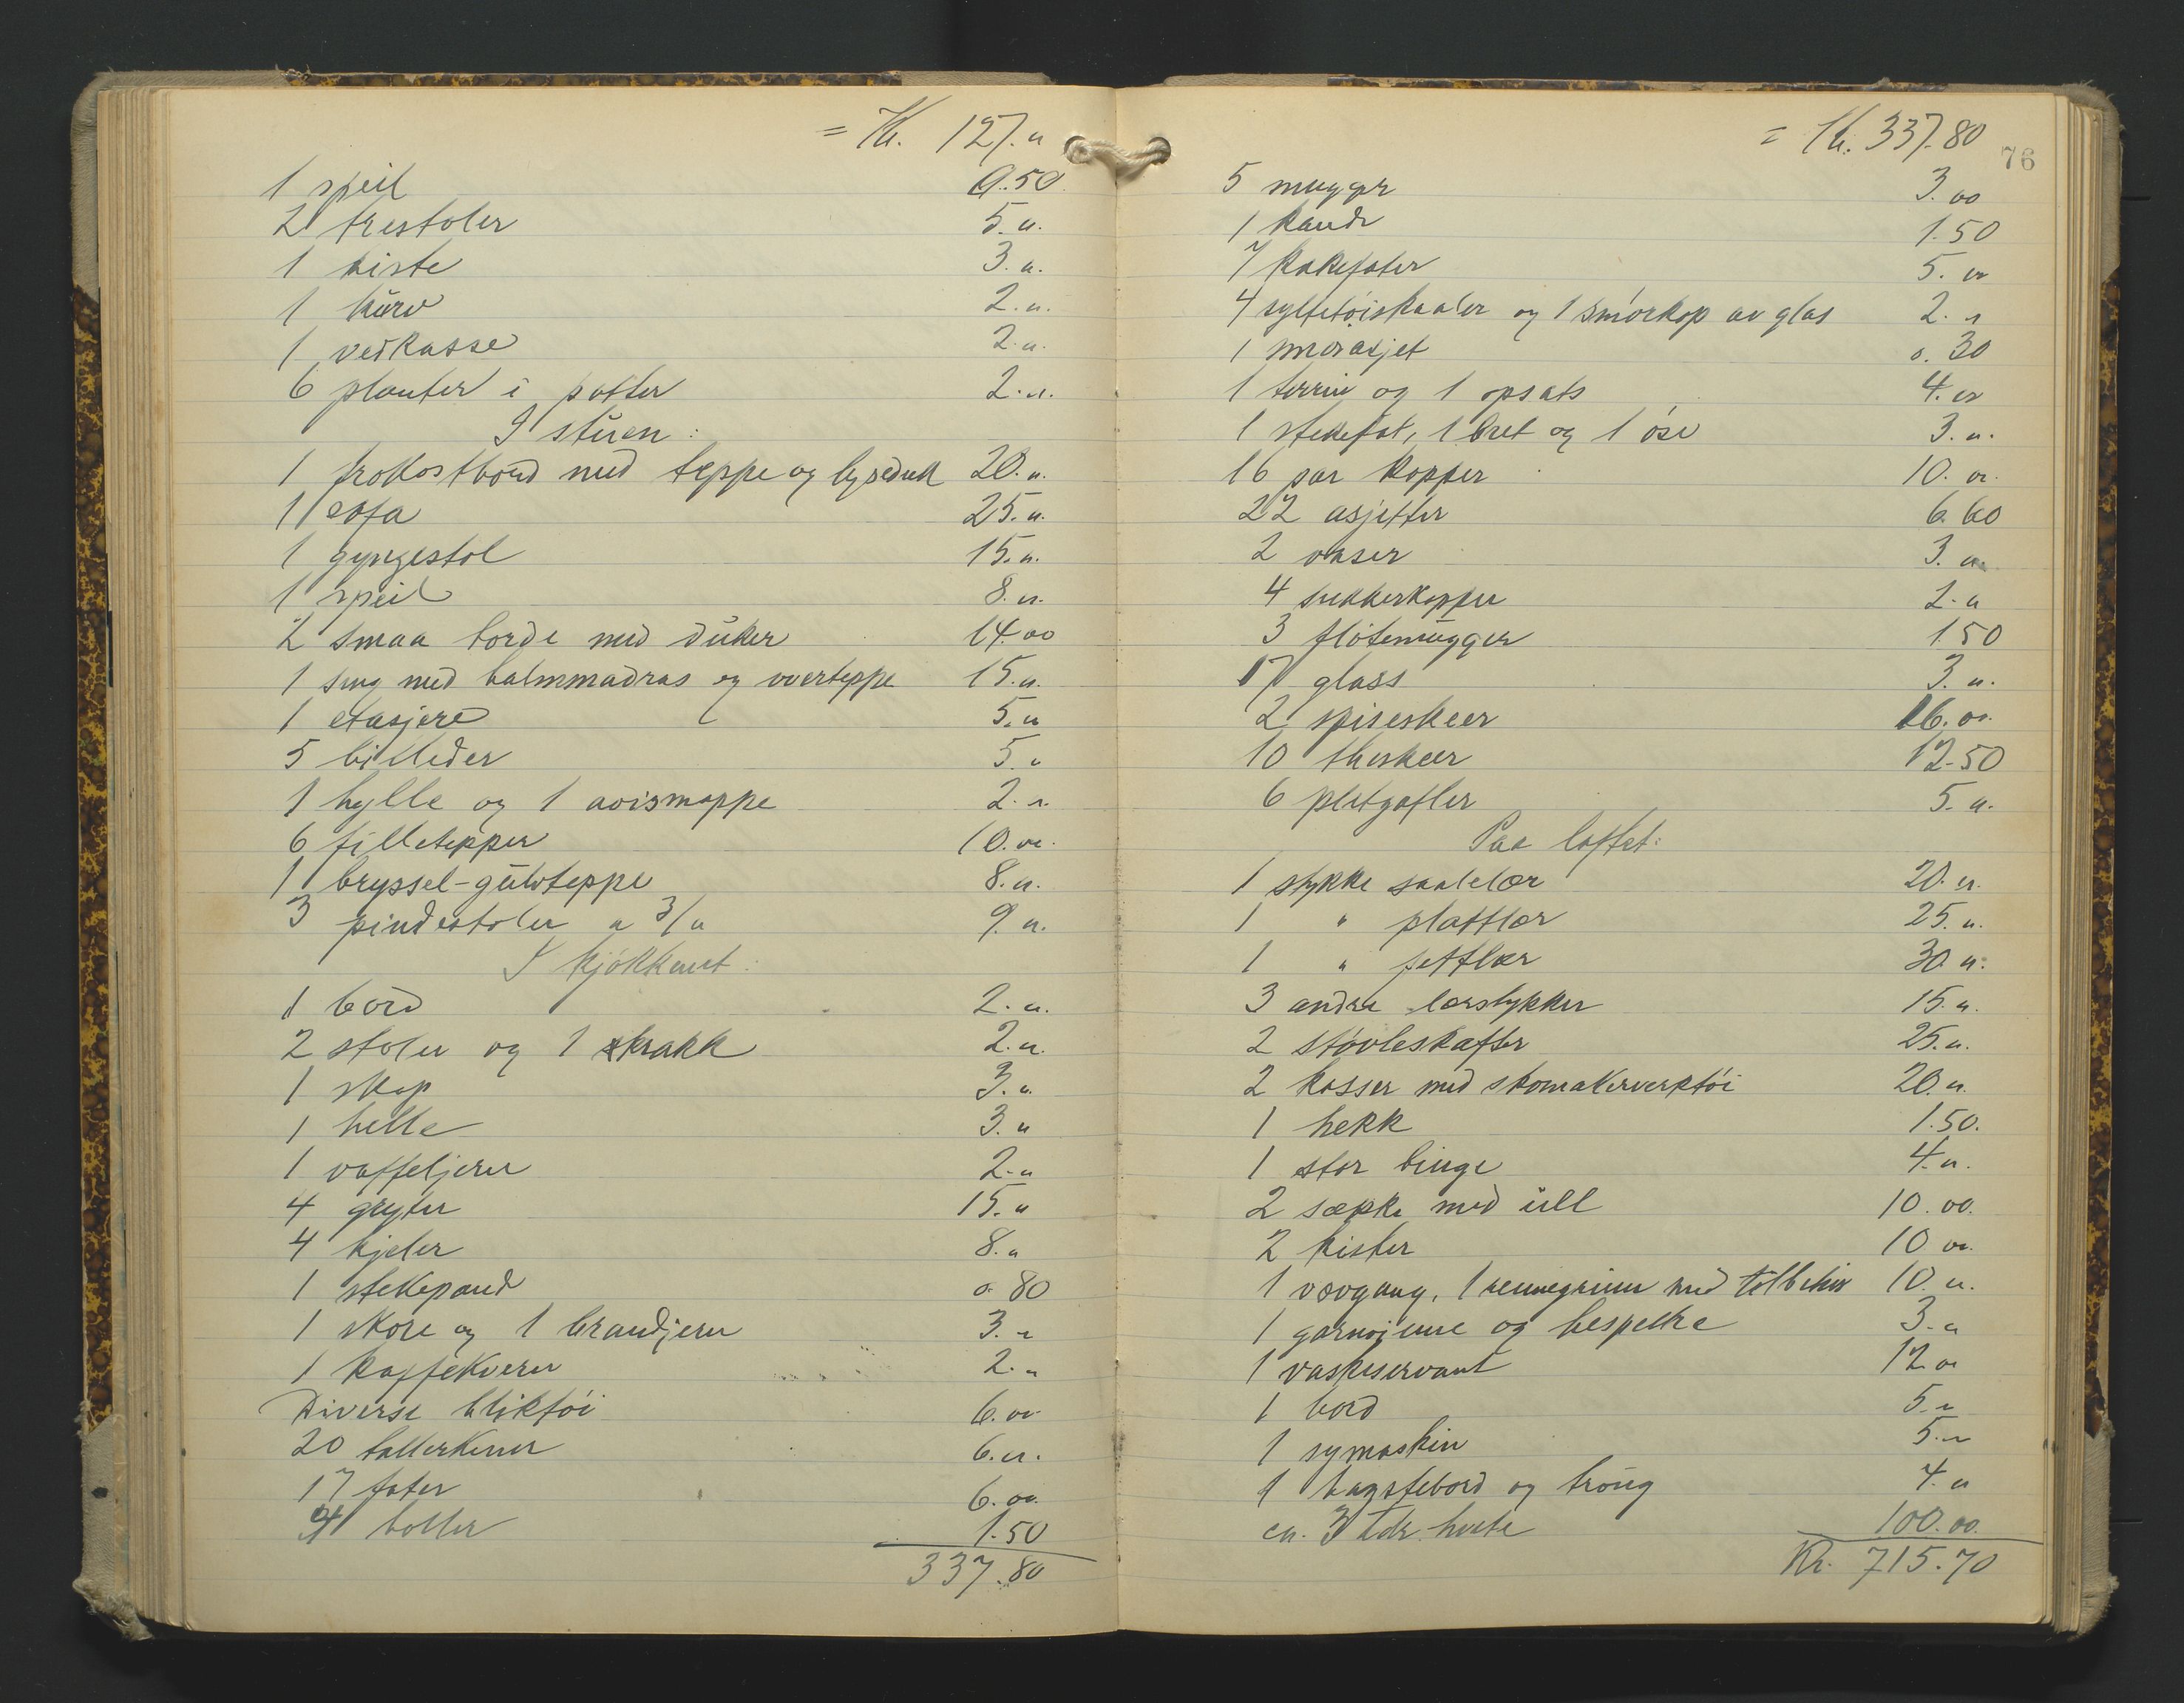 = Kr. 127.00
1 speil 0.50
2 trestoler 5.00
1 kiste 3.00
1 kurv 2.00
1 vedkasse 2.00
6 planter i potter 2.00
I stuen:
1 frokostbord med teppe og lyseduk 20.00
1 sofa 25.00
1 gyngestol 15.00
1 speil 8.00
2 smaa borde med duker 14.00
1 seng med halmmadras og overteppe 15.00
1 etasjere 5.00
5 billeder 5.00
1 hylle og 1 avismappe 2.00
6 filletepper 10.00
1 bryssel-gulvteppe 8.00
3 pindestoler a 3/00 9.00
I kjøkkenet:
1 bord 2.00
2 stoler og 1 krakk 2.00
1 skap 3.00
1 helle 3.00
1 vaffeljern 2.00
4 gryter 15.00
4 kjeler 8.00
1 stekepande 0.80
1 skore og 1 brandjern 3.00
1 kaffekvern 2.00
Diverse bliktøi 6.00
20 tallerkener 6.00
17 fater 6.00
4 boller 1.50
337.80
= Kr. 337.80
76
5 mugger 3.00
1 kande 1.50
7 kakefater 5.00
4 syltetøiskaaler og 1 smørkop av glas 2.00
1 smørasjet 0.30
1 terrin og 1 opsats 4.00
1 stekefat, 1 bret og 1 øse 3.00
16 par kopper 10.00
22 asjetter 6.60
2 vaser 3.00
4 sukkerkopper 2.00
3 fløtemugger 1.50
17 glass 3.00
2 spiseskeer 16.00
10 theskeer 12.50
6 pletgafler 5.00
Paa loftet:
1 stykke saalelær 20.00
1 " plattlær 25.00
1 " fettlær 30.00
3 andre lærstykker 15.00
2 støvleskafter 25.00
2 kasser med skomakerverktøi 20.00
1 hekk 1.50.
1 stor binge 4.00
2 sække med ull 10.00.
2 kister 10.00
1 vævgang, 1 rennegrinn med tilbehør 10.00
1 garnvinne og hespetre 3.00
1 vaskeservant 12.00
1 bord 5.00
1 symaskin 5.00
1 bagstebord og troug 4.00
ca. 3 tdr. hvete 100.00.
Kr. 715.70